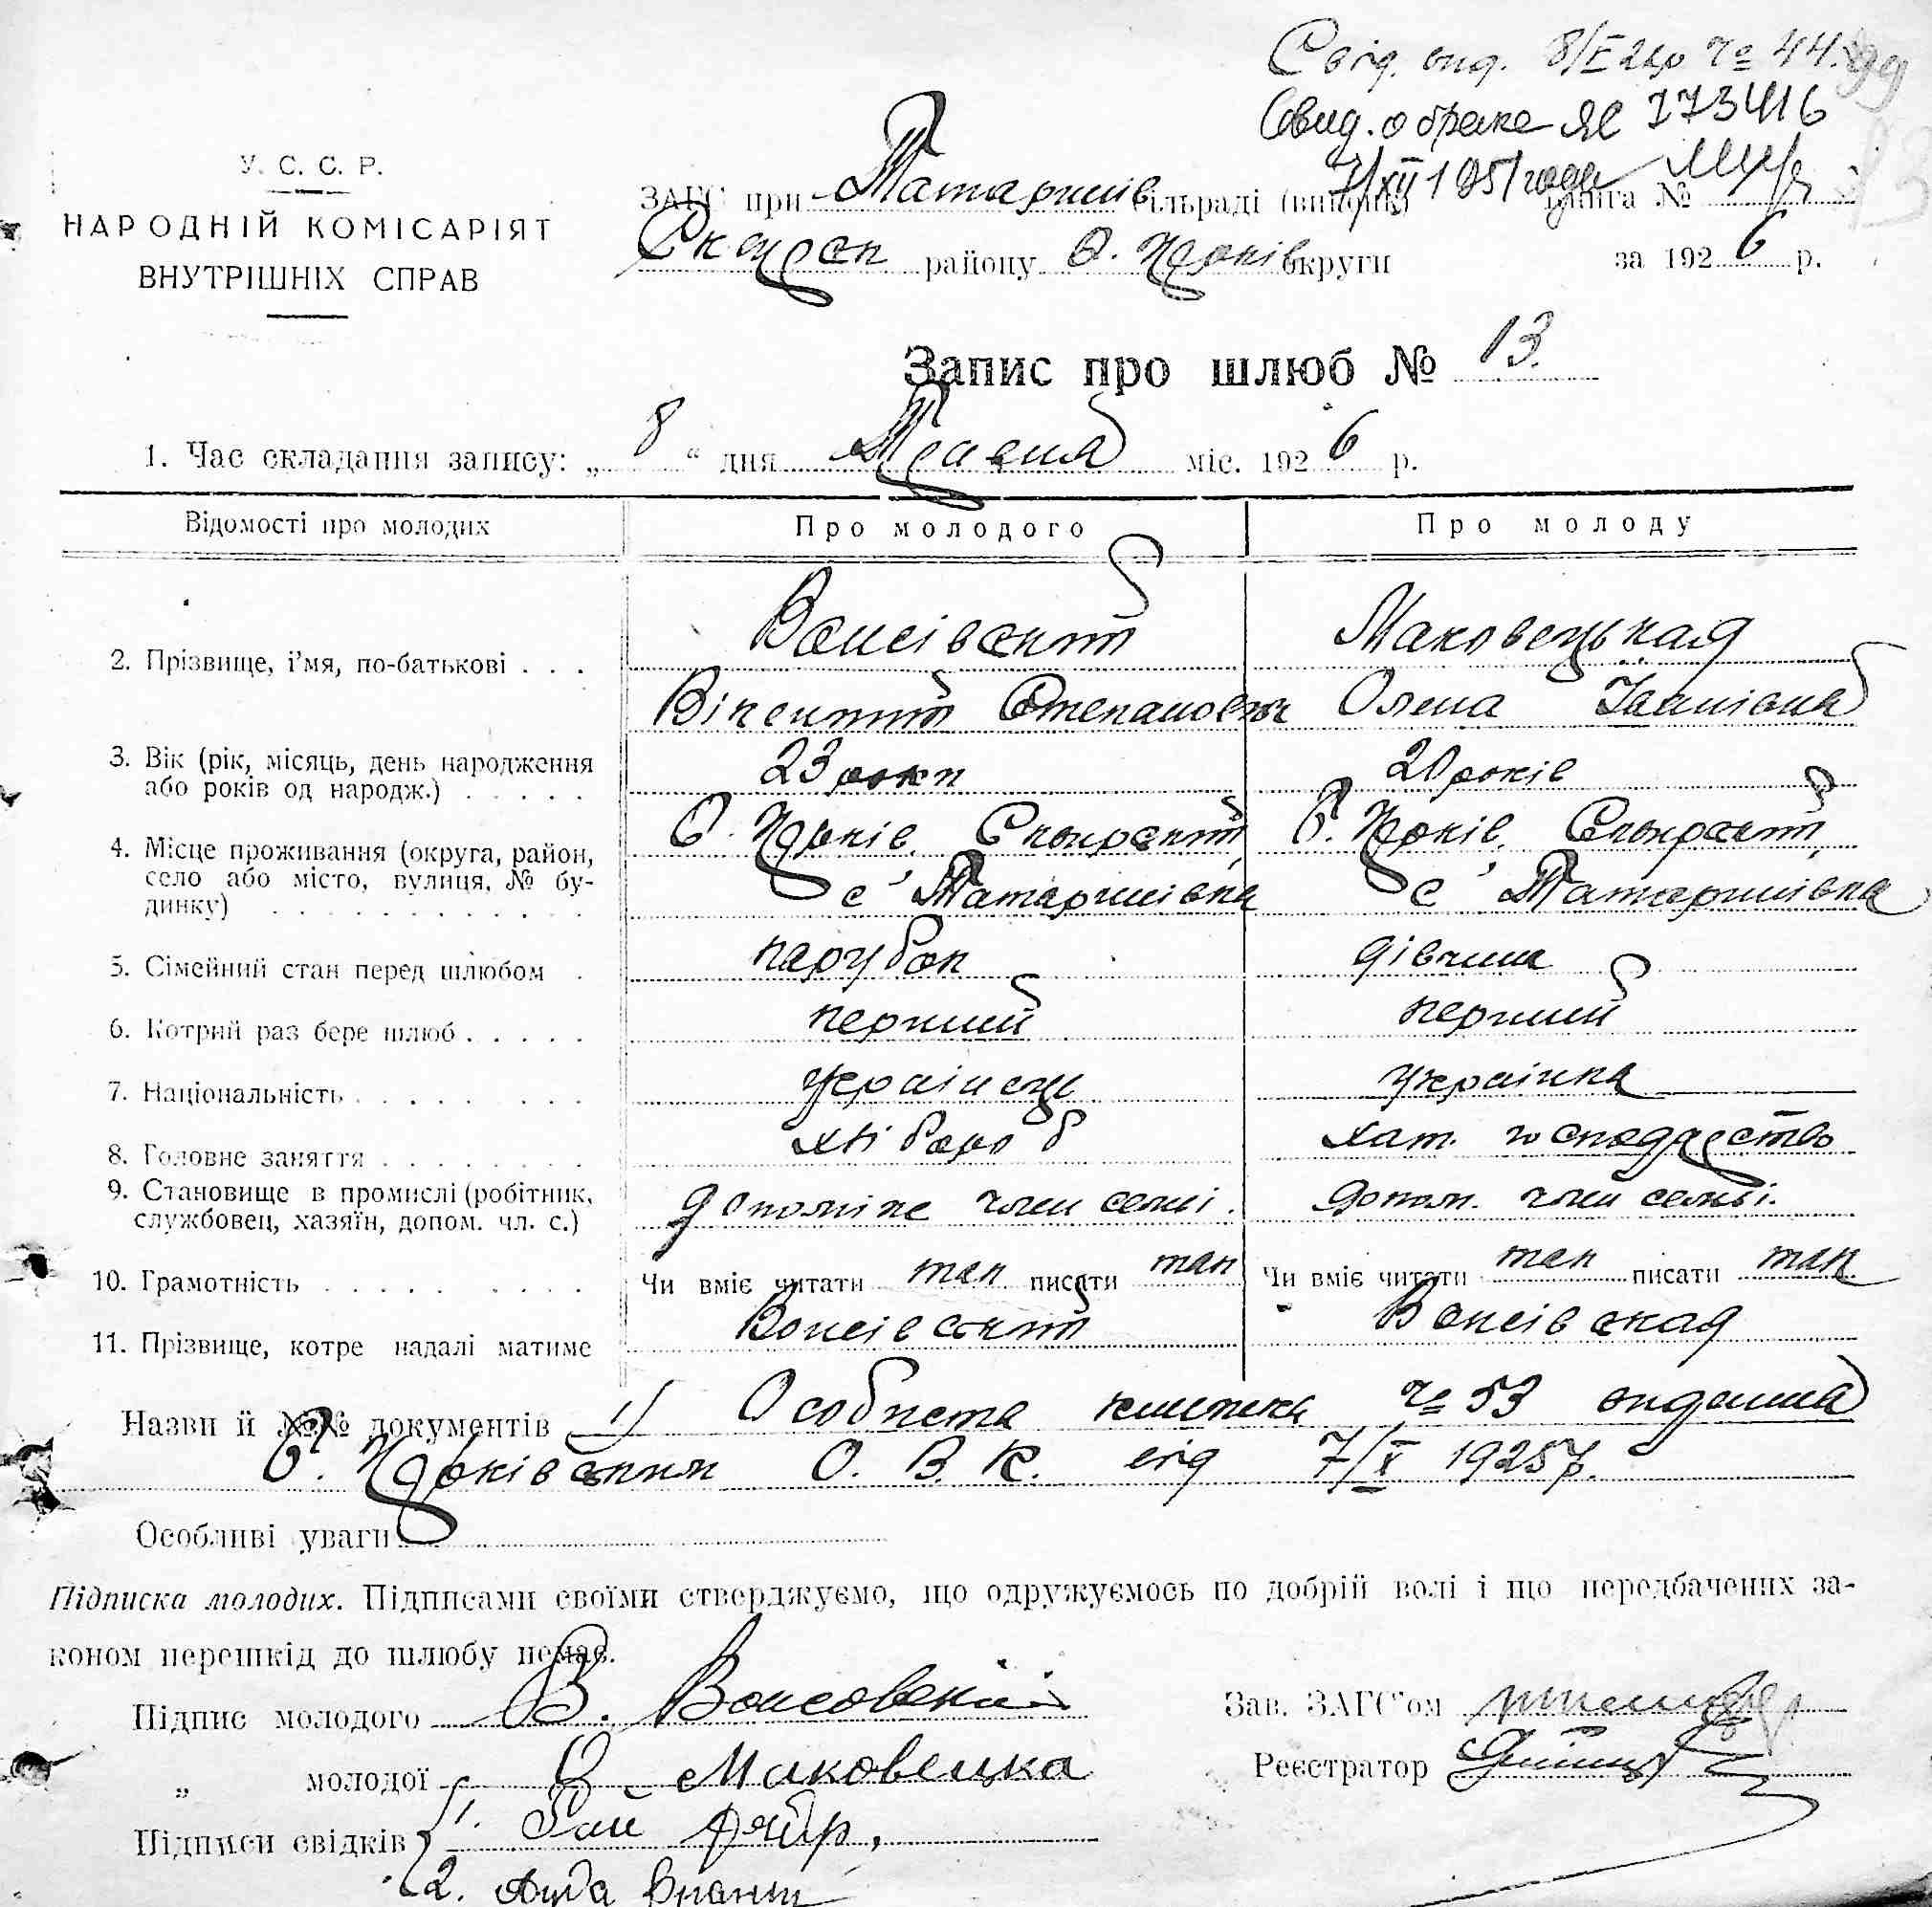 Свід. вид. 8/V 26р № 44.
Свид. о браке ЯС 173416
7/XII 1951 года
У. С. С. Р.
НАРОДНІЙ КОМІСАРІЯТ
ВНУТРІШНІХ СПРАВ
ЗАГС при Татаринів сільраді Книга №
Сквирск району Б. Церків округи за 1926 р.
Запис про шлюб № 13.
1. Час складання запису: „ 8 “ дня Травня міс. 1926 р.
Відомості про молодих Про молодого Про молоду
2. Прізвище, і’мя, по-батькові . . . Вонсівский Маковецькая
Вікентий Степанович Олена Іванівна
3. Вік (рік, місяць, день народження
або років од народж.) . . . . . 23 роки 20 років
4. Місце проживання (округа, район,
село або місто, вулиця, № бу-
динку) . . . . . . . . . . . .
Б. Церків. Сквирский, Б. Церків. Сквирский,
с Татаринівка с Татаринівка
5. Сімейний стан перед шлюбом . парубок дівчина
6. Котрий раз бере шлюб . . . . . перший перший
7. Національність . . . . . . . . українець українка
8. Головне заняття . . . . . . . . хлібороб хат. господарство
9. Становище в промислі (робітник,
службовец, хазяїн, допом. чл. с.) член семьі. допом. член семьі.
10. Грамотність . . . . . . . . . Чи вміє читати так писати так Чи вміє читати так писати так
11. Прізвище, котре надалі матиме Вонсівский Вонсівская
Назви й №№ документів 1) Особиста книжка № 53 видана
Б. Церківским О. В. К. від 7/X 1925р.
Особливі уваги
Підписка молодих. Підписами своїми стверджуємо, що одружуємось по добрій волі і що передбачених за-
коном перешкід до шлюбу немає.
Підпис молодого В. Вонсовский Зав. ЗАГС’ом
„ молодої О. Маковецка Реєстратор
Підписи свідків 1. Гай
2.